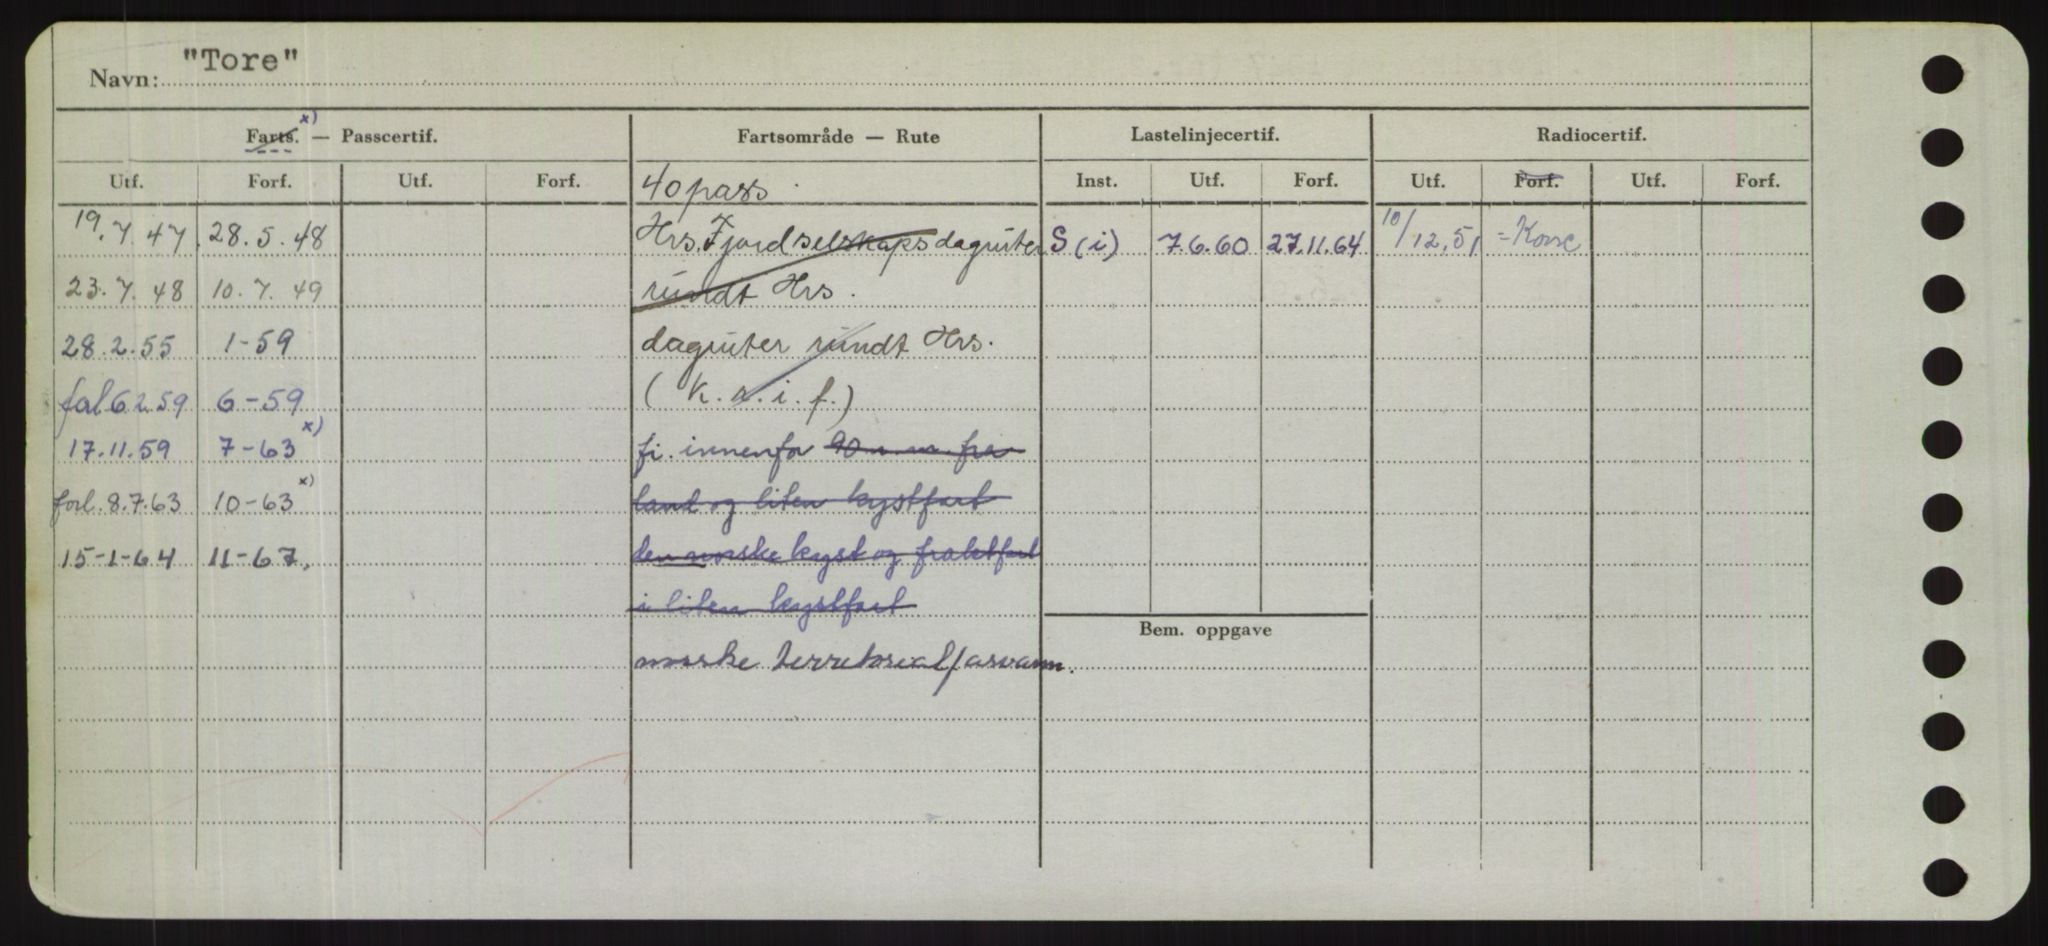 Navn: "Tore"
Farts. x) — Passcertif. Fartsområde — Rute Lastelinjecertif. Radiocertif.
Utf. Forf. Utf. Forf. 40 pass. Inst. Utf. Forf. Utf. Forf. Utf. Forf.
19.7.47. 28.5.48 Hrs. Fjordselskaps dagruter S (i) 7.6.60 27.11.64 10/12.51 = Korre
23.7.48 10.7.49 rundt Hrs.
28.2.55 1-59 dagruter rundt Hrs.
fol 6 2.59 6-59 (k. n. i. f.)
17.11.59 7-63 x) fi. innenfor 90 n.m. fra
forl. 8.7.63 10-63 x) land og liten kystfart
15-1-64 11-67. den norske kyst og fraktfart
i liten kystfart
Bem. oppgave
norske territorialfarvann.